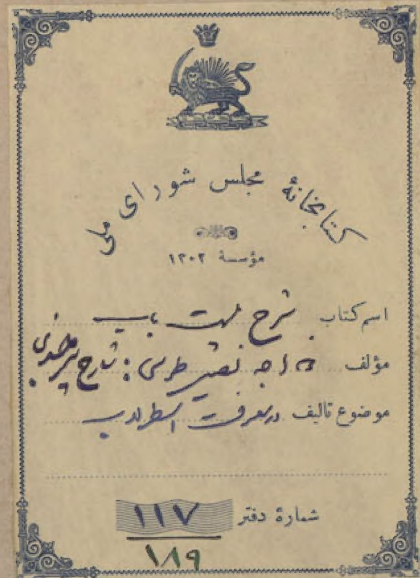 کتابخانهٔ مجلس شورای ملی
مؤسسهٔ ۱۳۰۲
اسم کتاب شرح بیست باب
مؤلف خواجه نصیر طوسی؛ شارح بیرجندی
موضوع تالیف در معرفت اسطرلاب
شمارهٔ دفتر ۱۱۷
۱۸۹